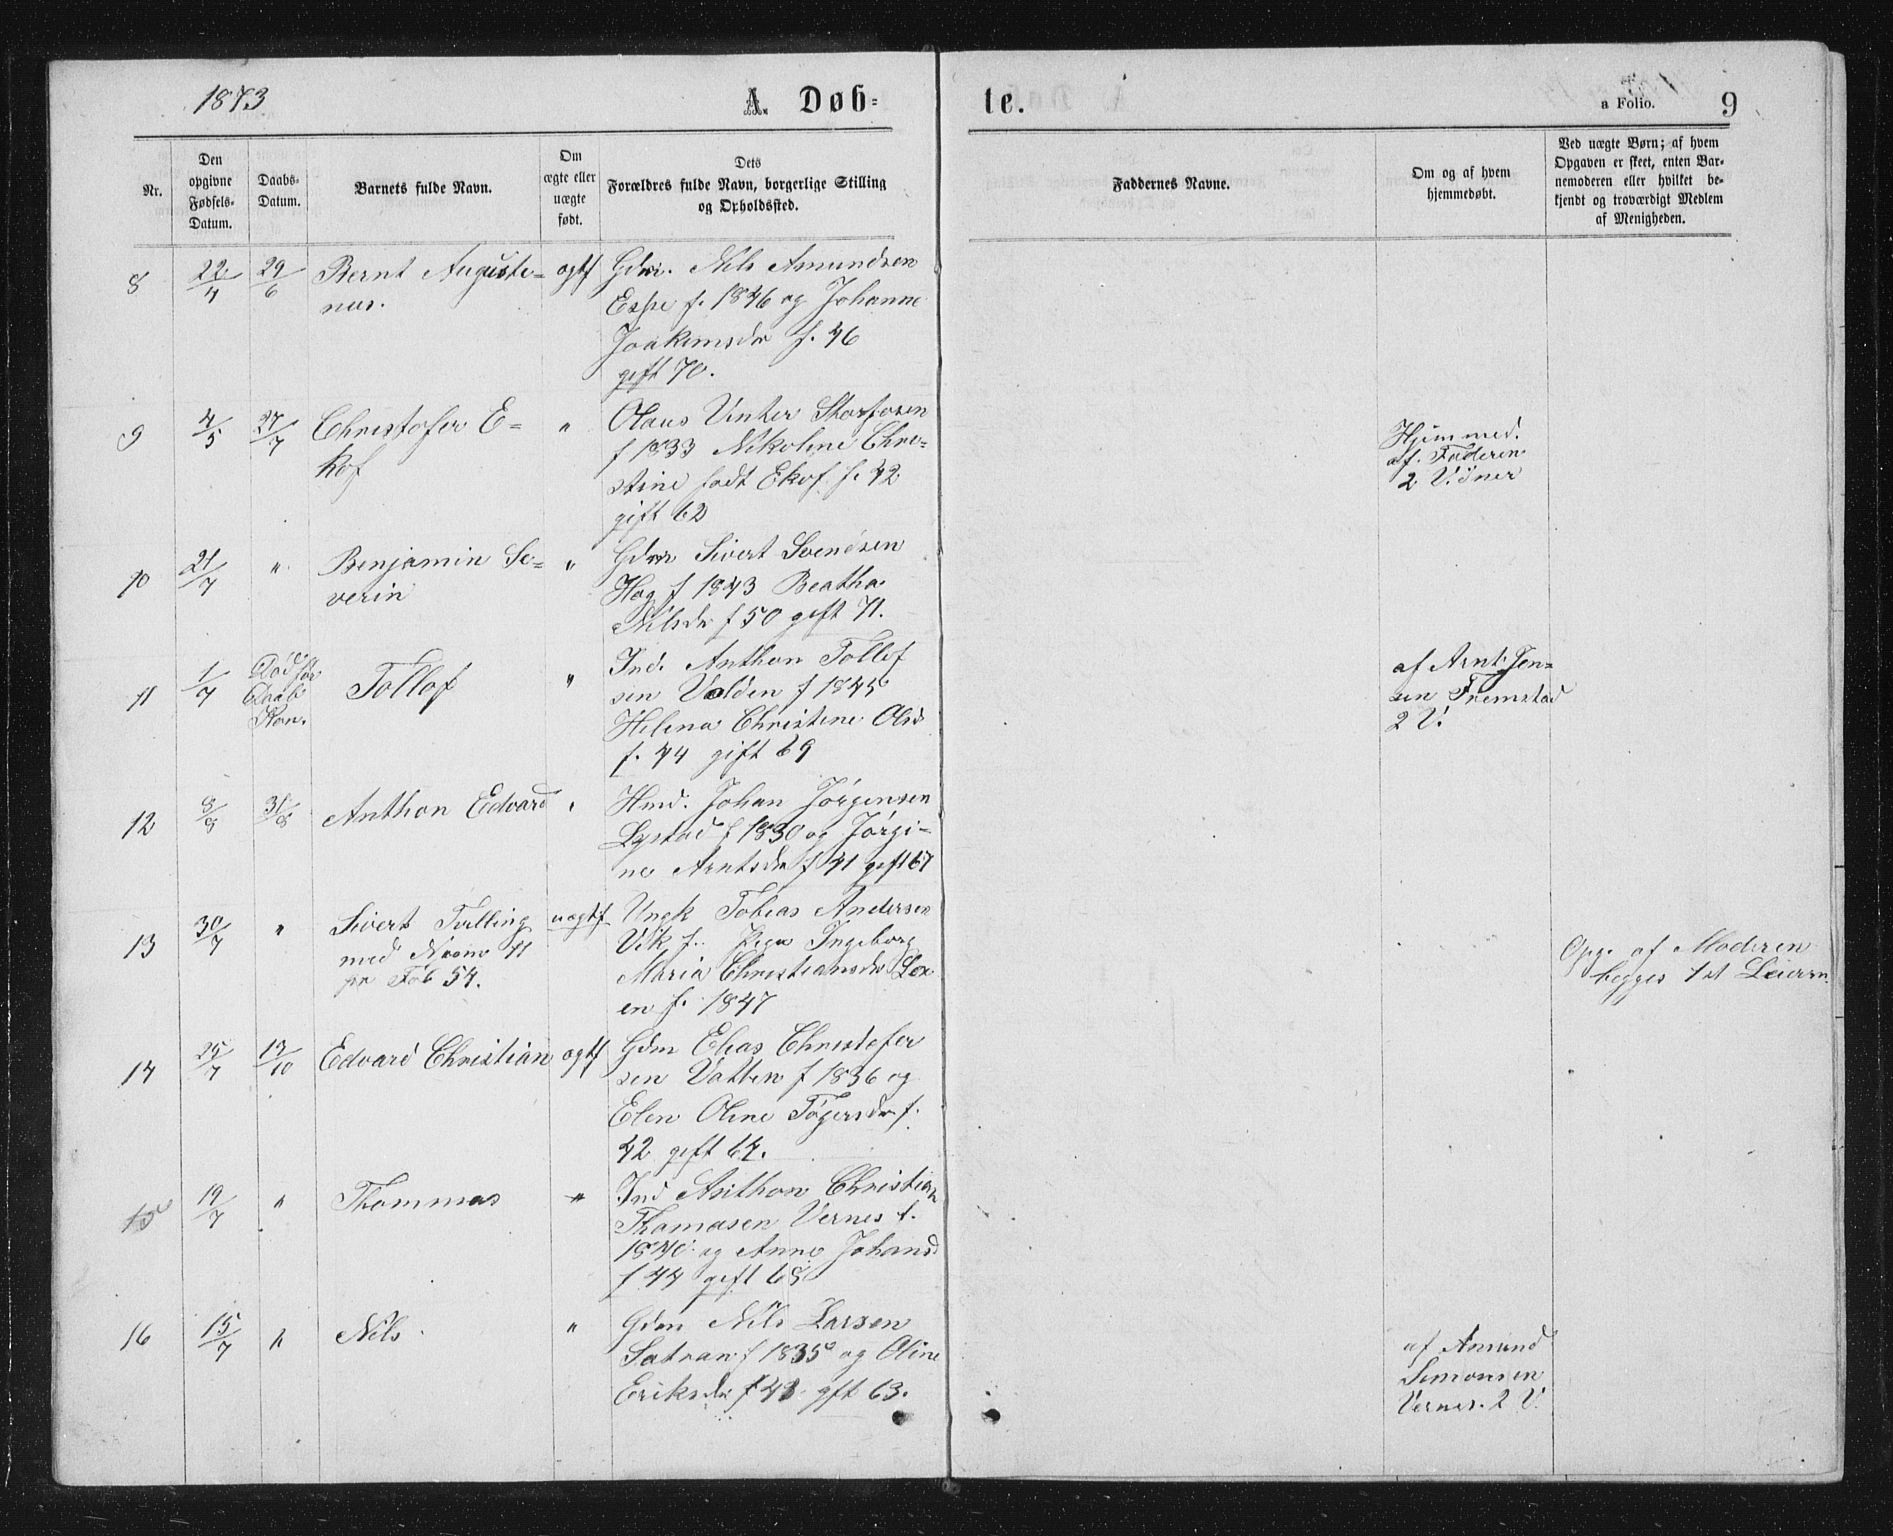 1873 A. Døb- te. a Folio. 9
Nr.
Den opgivne Fødsels-Datum.
Daabs-Datum.
Barnets fulde Navn.
Om ægte eller uægte født.
Dets Forældres fulde Navn, borgerlige Stilling og Opholdssted.
Faddernes Navne.
Om og af hvem hjemmedøbt.
Ved uægte Børn; af hvem Opgaven er skeet, enten Barnemoderen eller hvilket bekjendt og troværdigt Medlem af Menigheden.
8 22/4 29/6 Bernt Auguste- ægtf Gdm. Nils Amundsen
nus. Espe f. 1846 og Johanne
Joakimsdr f. 46
gift 70.
9 4/5 27/7 Christofer E- " Olaus Vinter Storfosen
kof f 1833 Nikoline Chri-
stine født Ekof f. 42
gift 62
Hjemmed.
af Faderen
2 Vidner
10 21/7 " Benjamin Se- " Gdm Sivert Svendsen
verin Hog f 1843 Beatha
Nilsdr f 50 gift 71.
11 1/7 Død før Tollof " Ind. Anthon Tollef
Daab sen Valden f 1845
Kon. Helena Christine Olsd
f. 44 gift 69
af Arnt Jen-
sen Fremstad
2 V.
12 8/8 31/8 Anthon Edvard " Hmd. Johan Jørgensen
Lystad f 1830 og Jørgi-
ne Arntsdr f 41 gift 67
13 30/7 " Sivert Tvilling uægtf Ungk Tobias Andersen
med Navne 11 Vik f. Pige Ingeborg
pr Fol 54. Maria Christiansdr
en f. 1847
Opg. af Moderen
begges 1st Leierm.
14 25/7 12/10 Edvard Christian ægtf Gdm Elias Christofer
sen Vatten f 1836 og
Elen Oline f.
42 gift 64.
15 19/7 " Thommas " Ind Anthon Christian
Thomasen Vernes f.
1840 og Anne Johansd
f 44 gift 68
16 15/7 " Nils " Gdm Nils Larsen
Satran f 1835 og Oline
Eriksdr f 43 gft 63.
af Amund
Simonsen
Vernes. 2 V.